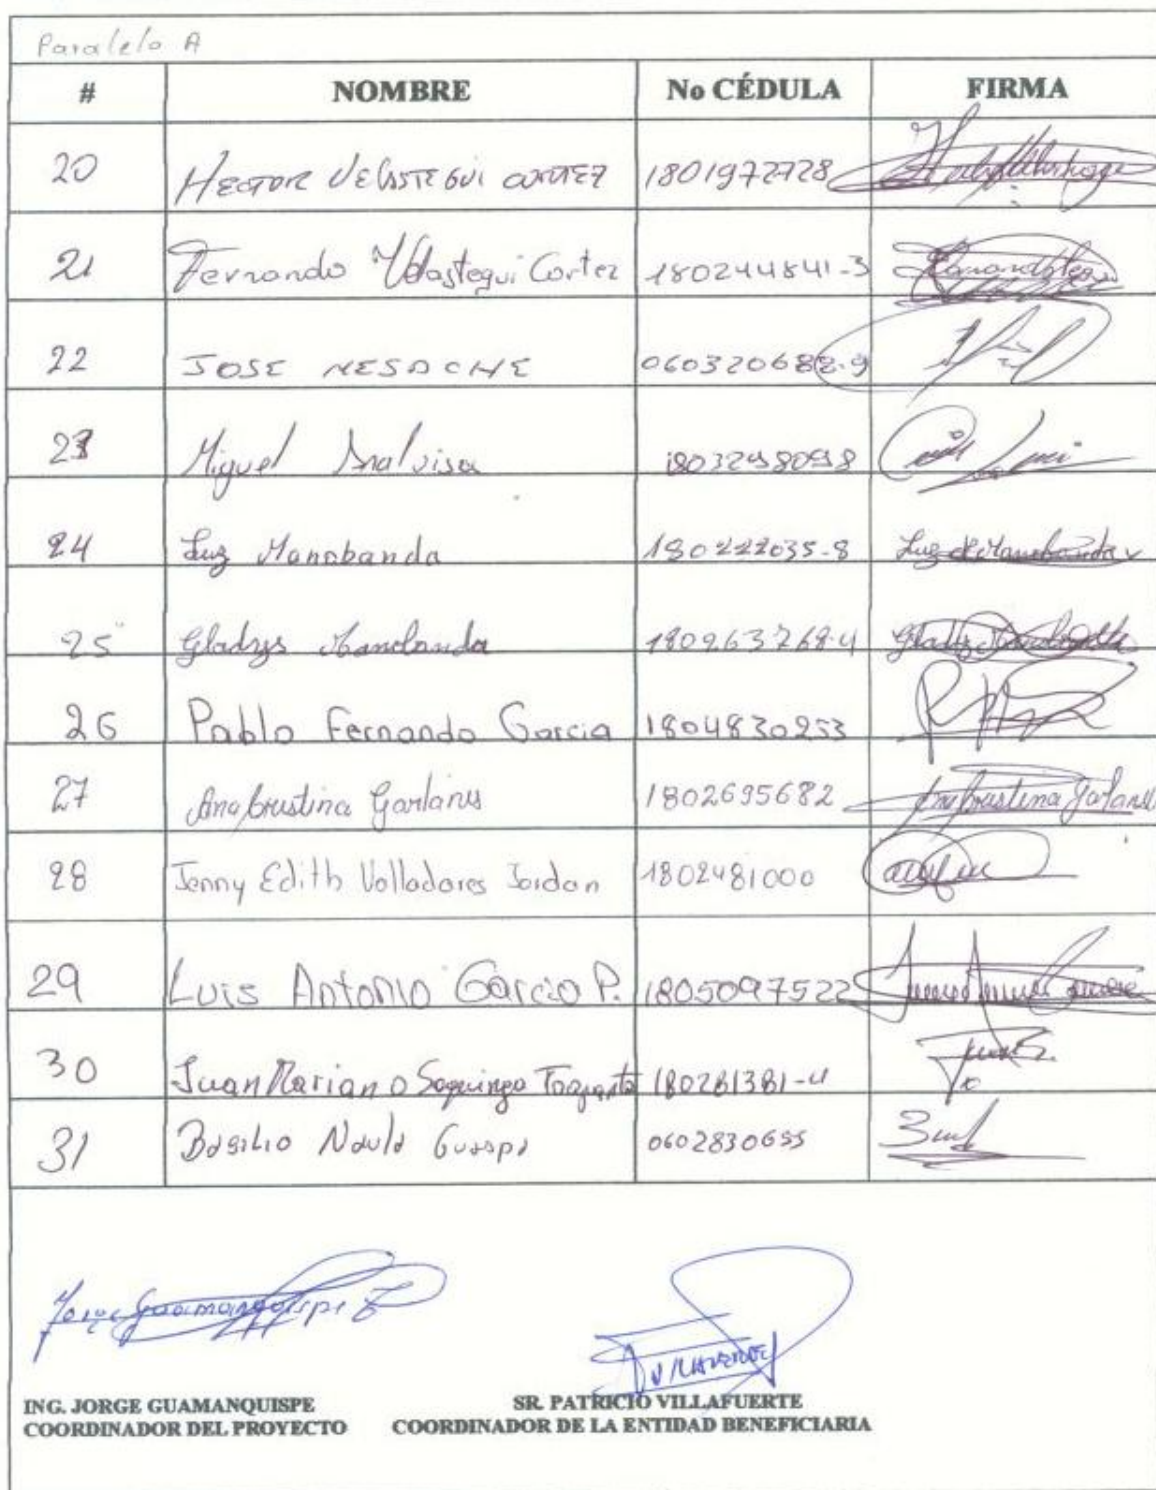 Paralelo A
# NOMBRE No CÉDULA FIRMA
20 HECTOR VELASTEGUI CORTEZ 1801972728
21 Fernando Velastegui Cortez 180244841-3
22 JOSE 060320688-9
23 Miguel 1803298098
24 Luz Manobanda 180222035-8 Luz Manobanda
25 Gladys Manobanda 180263768-4
26 Pablo Fernando Garcia 1804830253
27 Ana Cristina 1802695682 Ana Cristina
28 Jenny Edith Valladares Jordan 1802481000
29 Luis Antonio Garcia P. 1805097522
30 Juan Mariano Saquinga Toapanta 180281381-4
31 Basilio Naula Guaspa 0602830655
Jorge Guamanquispe
VILLAFUERTE
ING. JORGE GUAMANQUISPE SR. PATRICIO VILLAFUERTE
COORDINADOR DEL PROYECTO COORDINADOR DE LA ENTIDAD BENEFICIARIA